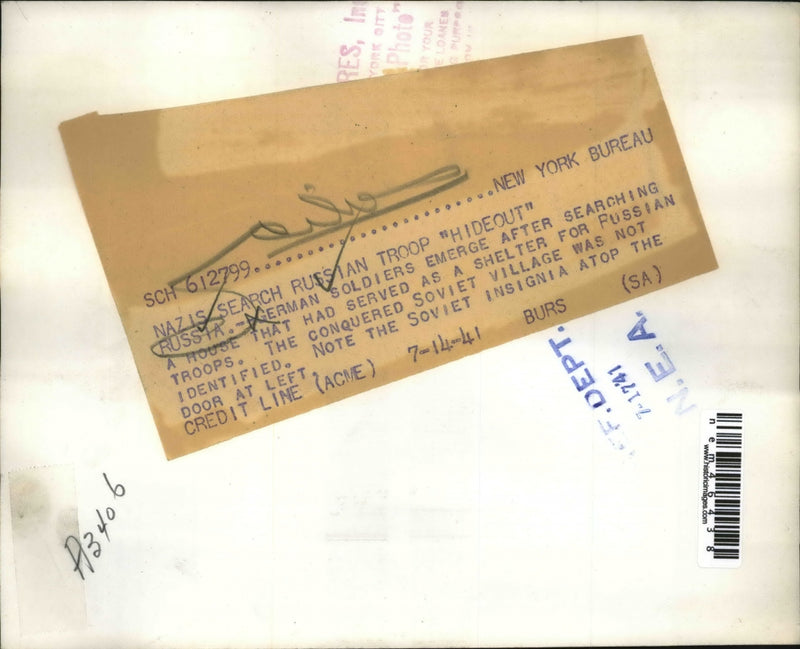 RES, In
YORK CITY
Photo"
OR YOUR
SCH 612799..........................NEW YORK BUREAU
NAZIS SEARCH RUSSIAN TROOP "HIDEOUT"
RUSSIA.--GERMAN SOLDIERS EMERGE AFTER SEARCHING
A HOUSE THAT HAD SERVED AS A SHELTER FOR RUSSIAN
TROOPS. THE CONQUERED SOVIET VILLAGE WAS NOT
IDENTIFIED. NOTE THE SOVIET INSIGNIA ATOP THE
DOOR AT LEFT.
CREDIT LINE (ACME) 7-14-41 BURS (SA)
F. DEPT.
7-1741
N. E. A.
nem46438
www.historicimages.com
A3406